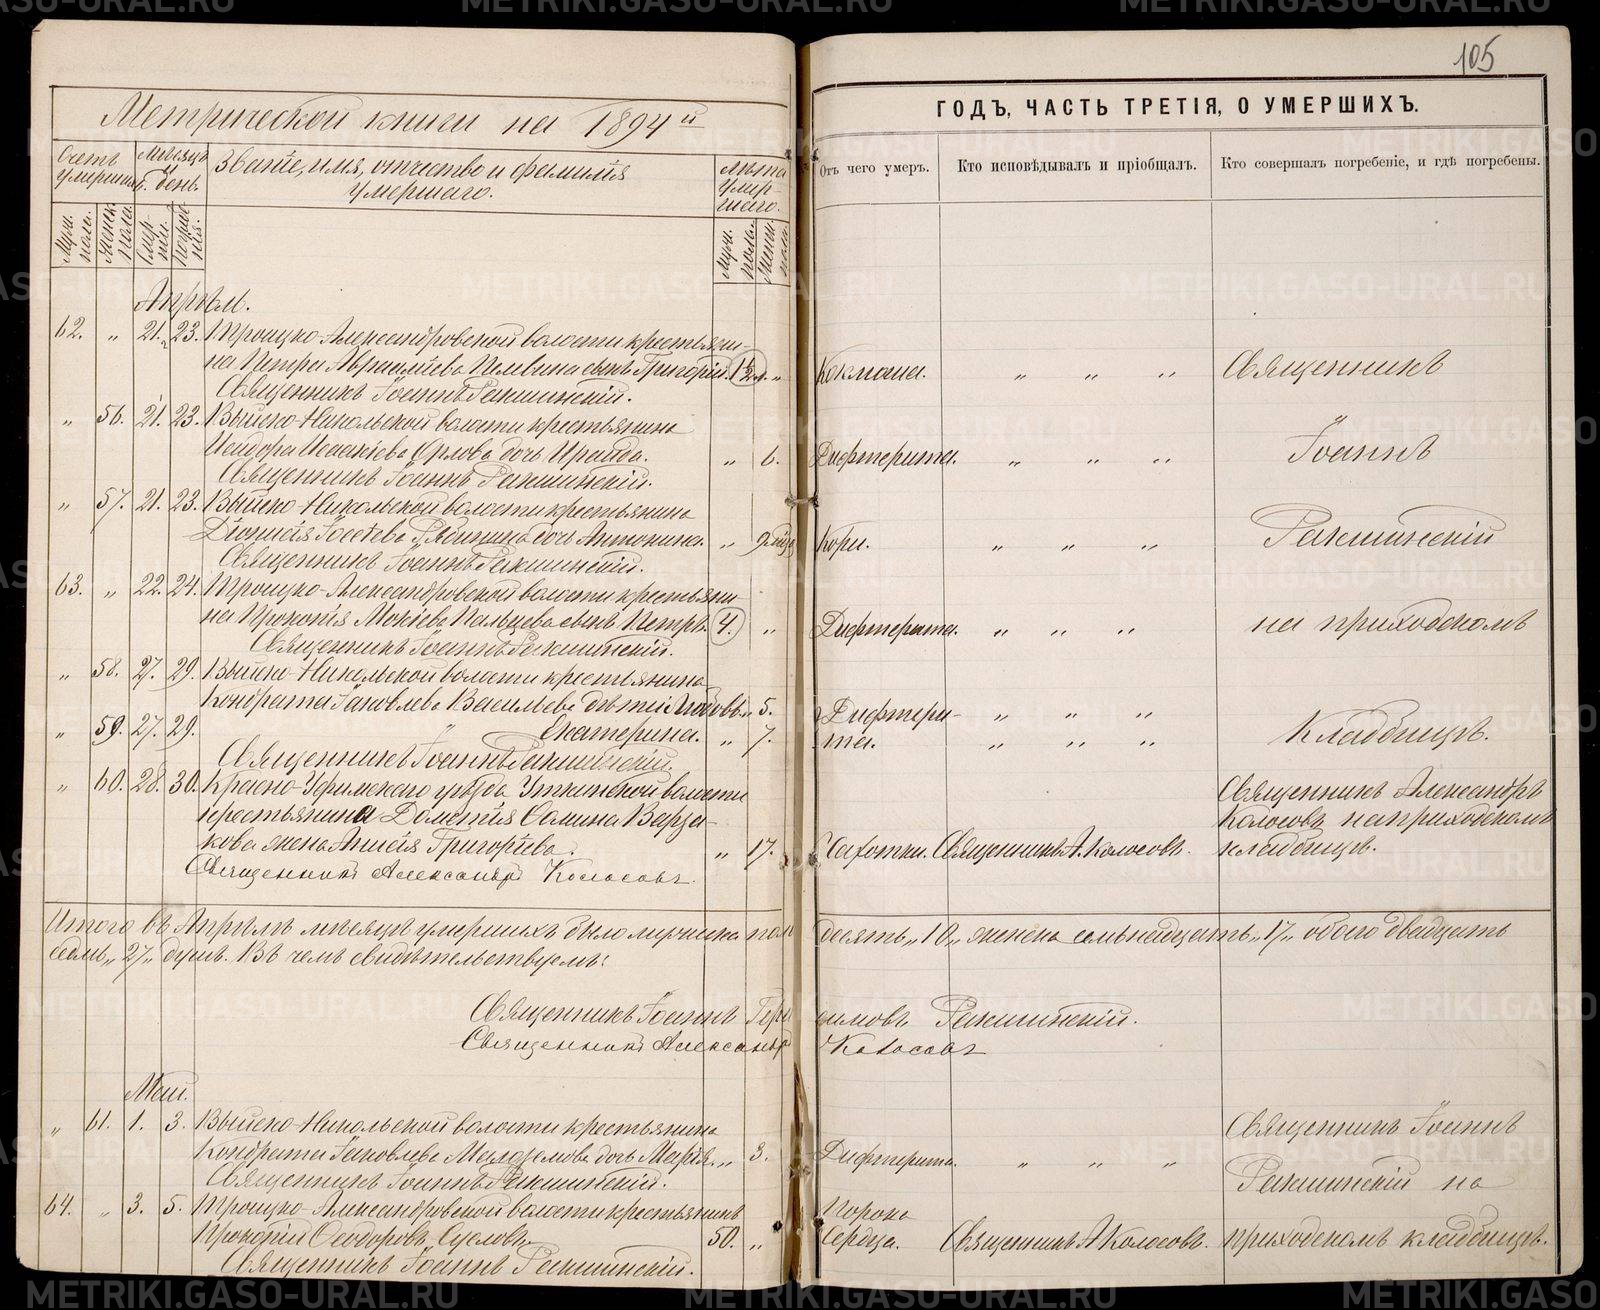 105
Метрической книги на 1894й
ГОДЪ, ЧАСТЬ ТРЕТІЯ, О УМЕРШИХЪ.
Счетъ умершихъ.
Мѣсяцъ и день.
Званіе, имя, отчество и фамилія умершаго.
Лѣта умершаго.
Отъ чего умеръ.
Кто исповѣдывалъ и пріобщалъ.
Кто совершалъ погребеніе, и гдѣ погребены.
Муж. пола.
Женск. пола.
Муж. пола.
Женск. пола.
Апрѣль.
62. " 21. 23. Троицко-Александровской волости крестьяни-
на Петра Авраамiева сынъ Григорій. 1½ " Коклюша. " " " Священникъ
Священникъ Іоаннъ
" 56. 21. 23. Выйско-Никольской волости крестьянина
Исидора Исаакіева Орлова дочь Ираида. " 6. Дифтерита. " " " Іоаннъ
Священникъ Іоаннъ
" 57. 21. 23. Выйско-Никольской волости крестьянина
Діонисія дочь Антонина. " 9 Кори. " " "
Священникъ Іоаннъ
63. " 22. 24. Троицко-Александровской волости крестьяни-
на Прокопія Мокіева Пальцева сынъ Петръ. 4. " Дифтерита. " " " на приходскомъ
Священникъ Іоаннъ
" 58. 27. 29. Выйско-Никольской волости крестьянина
Кондрата Іаковлева Васильева дѣти: Любовь. " 5. Дифтери- " " "
" 59. 27. 29. " Екатерина. " 7. та. " " " кладбищѣ.
Священникъ Іоаннъ
" 60. 28. 30. Красно-Уфимскаго уѣзда Уткинской волости Священникъ Александръ
крестьянина Дометія Варза- Колосовъ на приходскомъ
кова жена Анисія Григорьева. " 17. Чахотки. Священникъ А. Колосовъ. кладбищѣ.
Священникъ Александръ Колосовъ.
Итого въ Апрѣлѣ мѣсяцѣ умершихъ было мужска пола десять "10" женска семьнадцать "17" обоего двадцать
семь "27" душъ. Въ чемъ свидѣтельствуемъ:
Священникъ Іоаннъ Герасимовъ
Священникъ Александръ Колосовъ
Май.
" 61. 1. 3. Выйско-Никольской волости крестьянина Священникъ Іоаннъ
Кондрата Іаковлева Малоземова дочь Марія. " 3. Дифтерита. " " " на
Священникъ Іоаннъ
64. " 3. 5. Троицко-Александровской волости крестьянинъ Порока
Прокопій Ѳеодоровъ Сусловъ. 50. " сердца. Священникъ А Колосовъ. приходскомъ кладбищѣ.
Священникъ Іоаннъ
METRIKI.GASO-URAL.RU